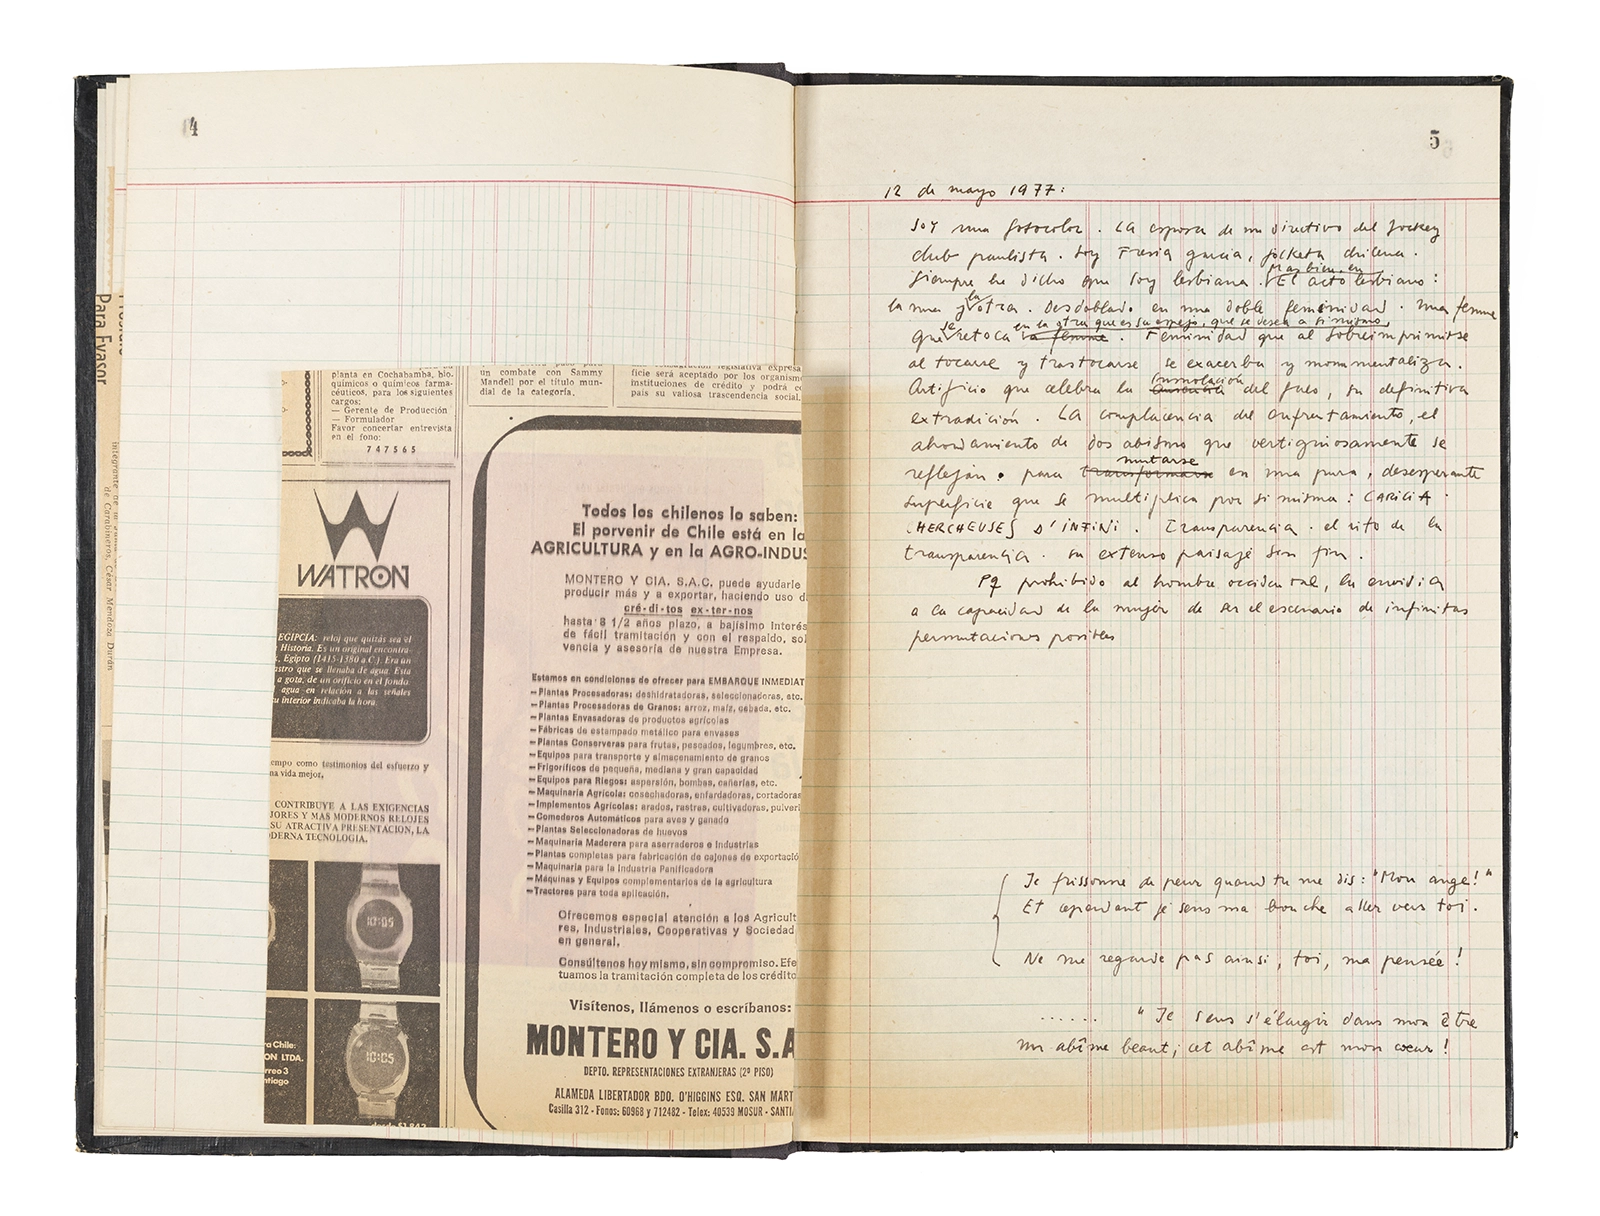 4
Para Evasor
integrante de la Junta
de Carabineros, César Mendoza Durán
planta en Cochabamba, bio-
químicos o químicos farma-
céuticos, para los siguientes
cargos:
— Gerente de Producción
— Formulador
Favor concertar entrevista
en el fono:
747565
un combate con Sammy
Mandell por el título mun-
dial de la categoría.
legislativa expresa
ficie será aceptado por los organismo
instituciones de crédito y podrá
país su valiosa trascendencia social.
WATRON
EGIPCIA: reloj que quitás sea el
Historia. Es un original encontra-
. Egipto (1415-1380 a C). Era un
astro que se llenaba de agua. Esta
a gota, de un orificio en el fondo.
agua en relación a las señales
u interior indicaba la hora.
empo como testimonios del esfuerzo y
na vida mejor.
CONTRIBUYE A LAS EXIGENCIAS
JORES Y MAS MODERNOS RELOJES
SU ATRACTIVA PRESENTACION, LA
DERNA TECNOLOGIA.
10:05
10:05
ra Chile:
ON LTDA.
rreo 3
ntiago
desde $1.847
Todos los chilenos lo saben:
El porvenir de Chile está en la
AGRICULTURA y en la AGRO-INDUS
MONTERO Y CIA. S.A.C. puede ayudarle
producir más y a exportar, haciendo uso d
cré-di-tos ex-ter-nos
hasta 8 1/2 años plazo, a bajísimo interés
de fácil tramitación y con el respaldo, sol
vencia y asesoría de nuestra Empresa.
Estamos en condiciones de ofrecer para EMBARQUE INMEDIAT
—Plantas Procesadoras: deshidratadoras, seleccionadoras, etc.
—Plantas Procesadoras de Granos: arroz, maíz, cebada, etc.
—Plantas Envasadoras de productos agrícolas
—Fábricas de estampado metálico para envases
—Plantas Conserveras para frutas, pescados, legumbres, etc.
—Equipos para transporte y almacenamiento de granos
—Frigoríficos de pequeña, mediana y gran capacidad
—Equipos para Riegos: aspersión, bombas, cañerías, etc.
—Maquinaria Agrícola: cosechadoras, enfardadoras, cortadoras
—Implementos Agrícolas: arados, rastras, cultivadoras, pulveri
—Comederos Automáticos para aves y ganado
—Plantas Seleccionadoras de huevos
—Maquinaria Maderera para aserraderos e Industrias
—Plantas completas para fabricación de cajones de exportació
—Maquinaria para la Industria Panificadora
—Máquinas y Equipos complementarios de la agricultura
—Tractores para toda aplicación.
Ofrecemos especial atención a los Agricult
res, Industriales, Cooperativas y Sociedad
en general.
Consúltenos hoy mismo, sin compromiso. Efe
tuamos la tramitación completa de los crédito
Visítenos, llámenos o escríbanos:
MONTERO Y CIA. S.A
DEPTO. REPRESENTACIONES EXTRANJERAS (2º PISO)
ALAMEDA LIBERTADOR BDO. O'HIGGINS ESQ. SAN MART
Casilla 312 - Fonos: 60968 y 712482 - Telex: 40539 MOSUR - SANTI
5
12 de mayo 1977:
Soy una fotocolor. La esposa de un directivo del Jockey
club paulista. Soy Fresia garcia, jocketa chilena.
Siempre he dicho que soy lesbiana. Mas bien, en El acto lesbiano:
la una y la otra. Desdoblado en una doble feminidad. Una femme
que se retoca en la otra que es su espejo, que se desea a si misma, la femme. Feminidad que al sobreimprimirse
al tocarse y trastocarse se exacerba y monumentaliza.
Artificio que celebra la inmolación del falo, su definitiva
extradición. La complacencia del enfrentamiento, el
ahondamiento de dos abismo que vertiginosamente se
reflejan. para transformarse mutarse en una pura, desesperante
superficie que se multiplica por si misma: CARICIA.
CHERCHEUSES D'INFINI. Transparencia. el rito de la
transparencia. su extenso paisaje sin fin.
Pq prohibido al hombre occidental, la envidia
a la capacidad de la mujer de ser el escenario de infinitas
permutaciones posibles
Je frissonne de peur quand tu me dis: "Mon ange!"
Et cependant je sens ma bouche aller vers toi.
Ne me regarde pas ainsi, toi, ma pensée!
...... "Je sens s'élargir dans mon être
un abîme béant; cet abîme est mon cœur!